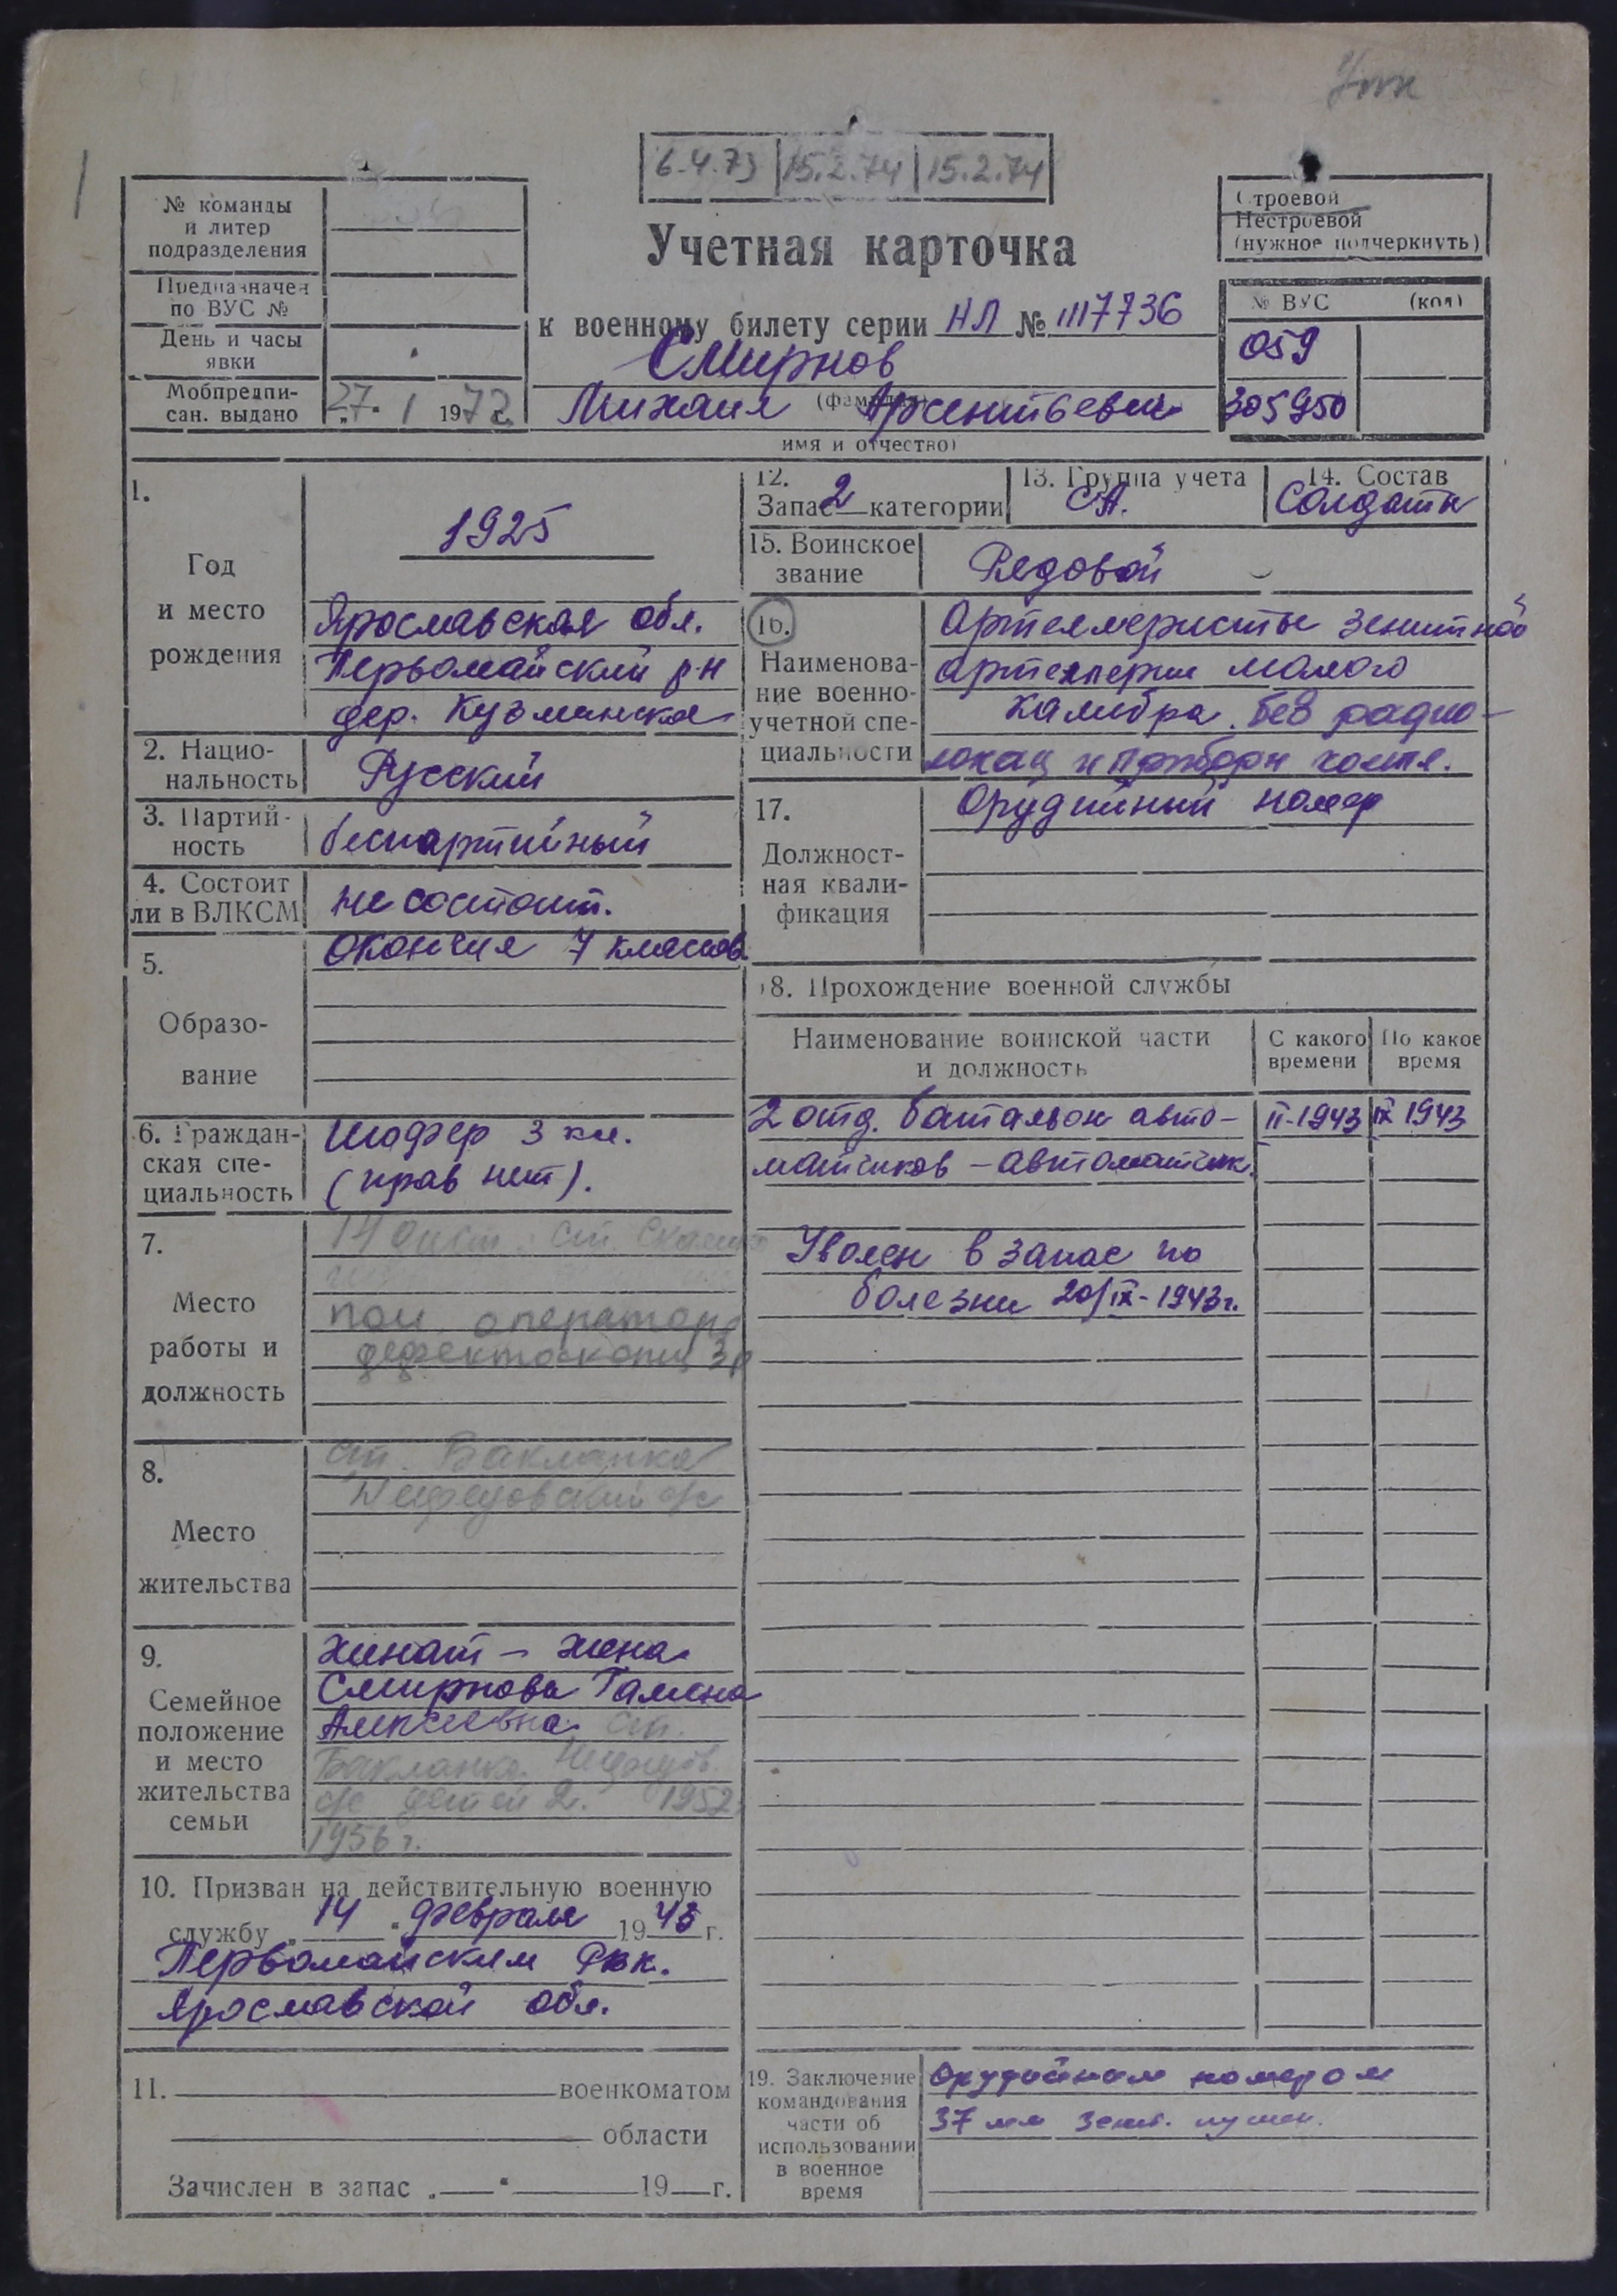 6.4.73 15.2.74 15.2.74
№ команды
и литер
подразделения
Предназначен
по ВУС №
День и часы
явки
Мобпредпи-
сан. выдано 27. 1 1972 г.
Учетная карточка
к военному билету серии НЛ № 1117736
Смирнов
(фамилия,
Михаил Арсентьевич
имя и отчество)
Строевой
Нестроевой
(нужное подчеркнуть)
№ ВУС (код)
059
305950
1.
Год
и место
рождения
1925
Ярославская обл.
Первомайский р-н
дер. Кузьминское
2. Нацио-
нальность Русский
3. Партий-
ность беспартийный
4. Состоит
ли в ВЛКСМ не состоит.
5.
Образо-
вание
Окончил 7 классов
6. Граждан-
ская спе-
циальность
Шофер 3 кл.
(прав нет).
7.
Место
работы и
должность
14 дист. ст.
пом. оператора
дефектоскопиц 3р
8.
Место
жительства
ст. Бакланка
9.
Семейное
положение
и место
жительства
семьи
Женат – жена
Смирнова
Алексеевна ст.
Бакланка
с/с детей 2. 1952,
1956 г.
10. Призван на действительную военную
службу „14“ февраля 1943 г.
Первомайским Рвк.
Ярославской обл.
11. военкоматом
области
Зачислен в запас „ “ 19 г.
12.
Запас 2 категории
13. Группа учета
СА.
14. Состав
Солдаты
15. Воинское
звание Рядовой
16.
Наименова-
ние военно-
учетной спе-
циальности
Артеллеристы зенитной
артеллерии малого
калибра без радио-
локац и прибори
17.
Должност-
ная квали-
фикация
Орудийный номер
18. Прохождение военной службы
Наименование воинской части
и должность
С какого
времени
По какое
время
2 отд. батальон авто- II-1943 IX 1943
матчиков – автоматчик.
Уволен в запас по
болезни 20/IX-1943г.
19. Заключение
командования
части об
использовании
в военное
время
Орудийным номером
37 мм зенит. пушек.